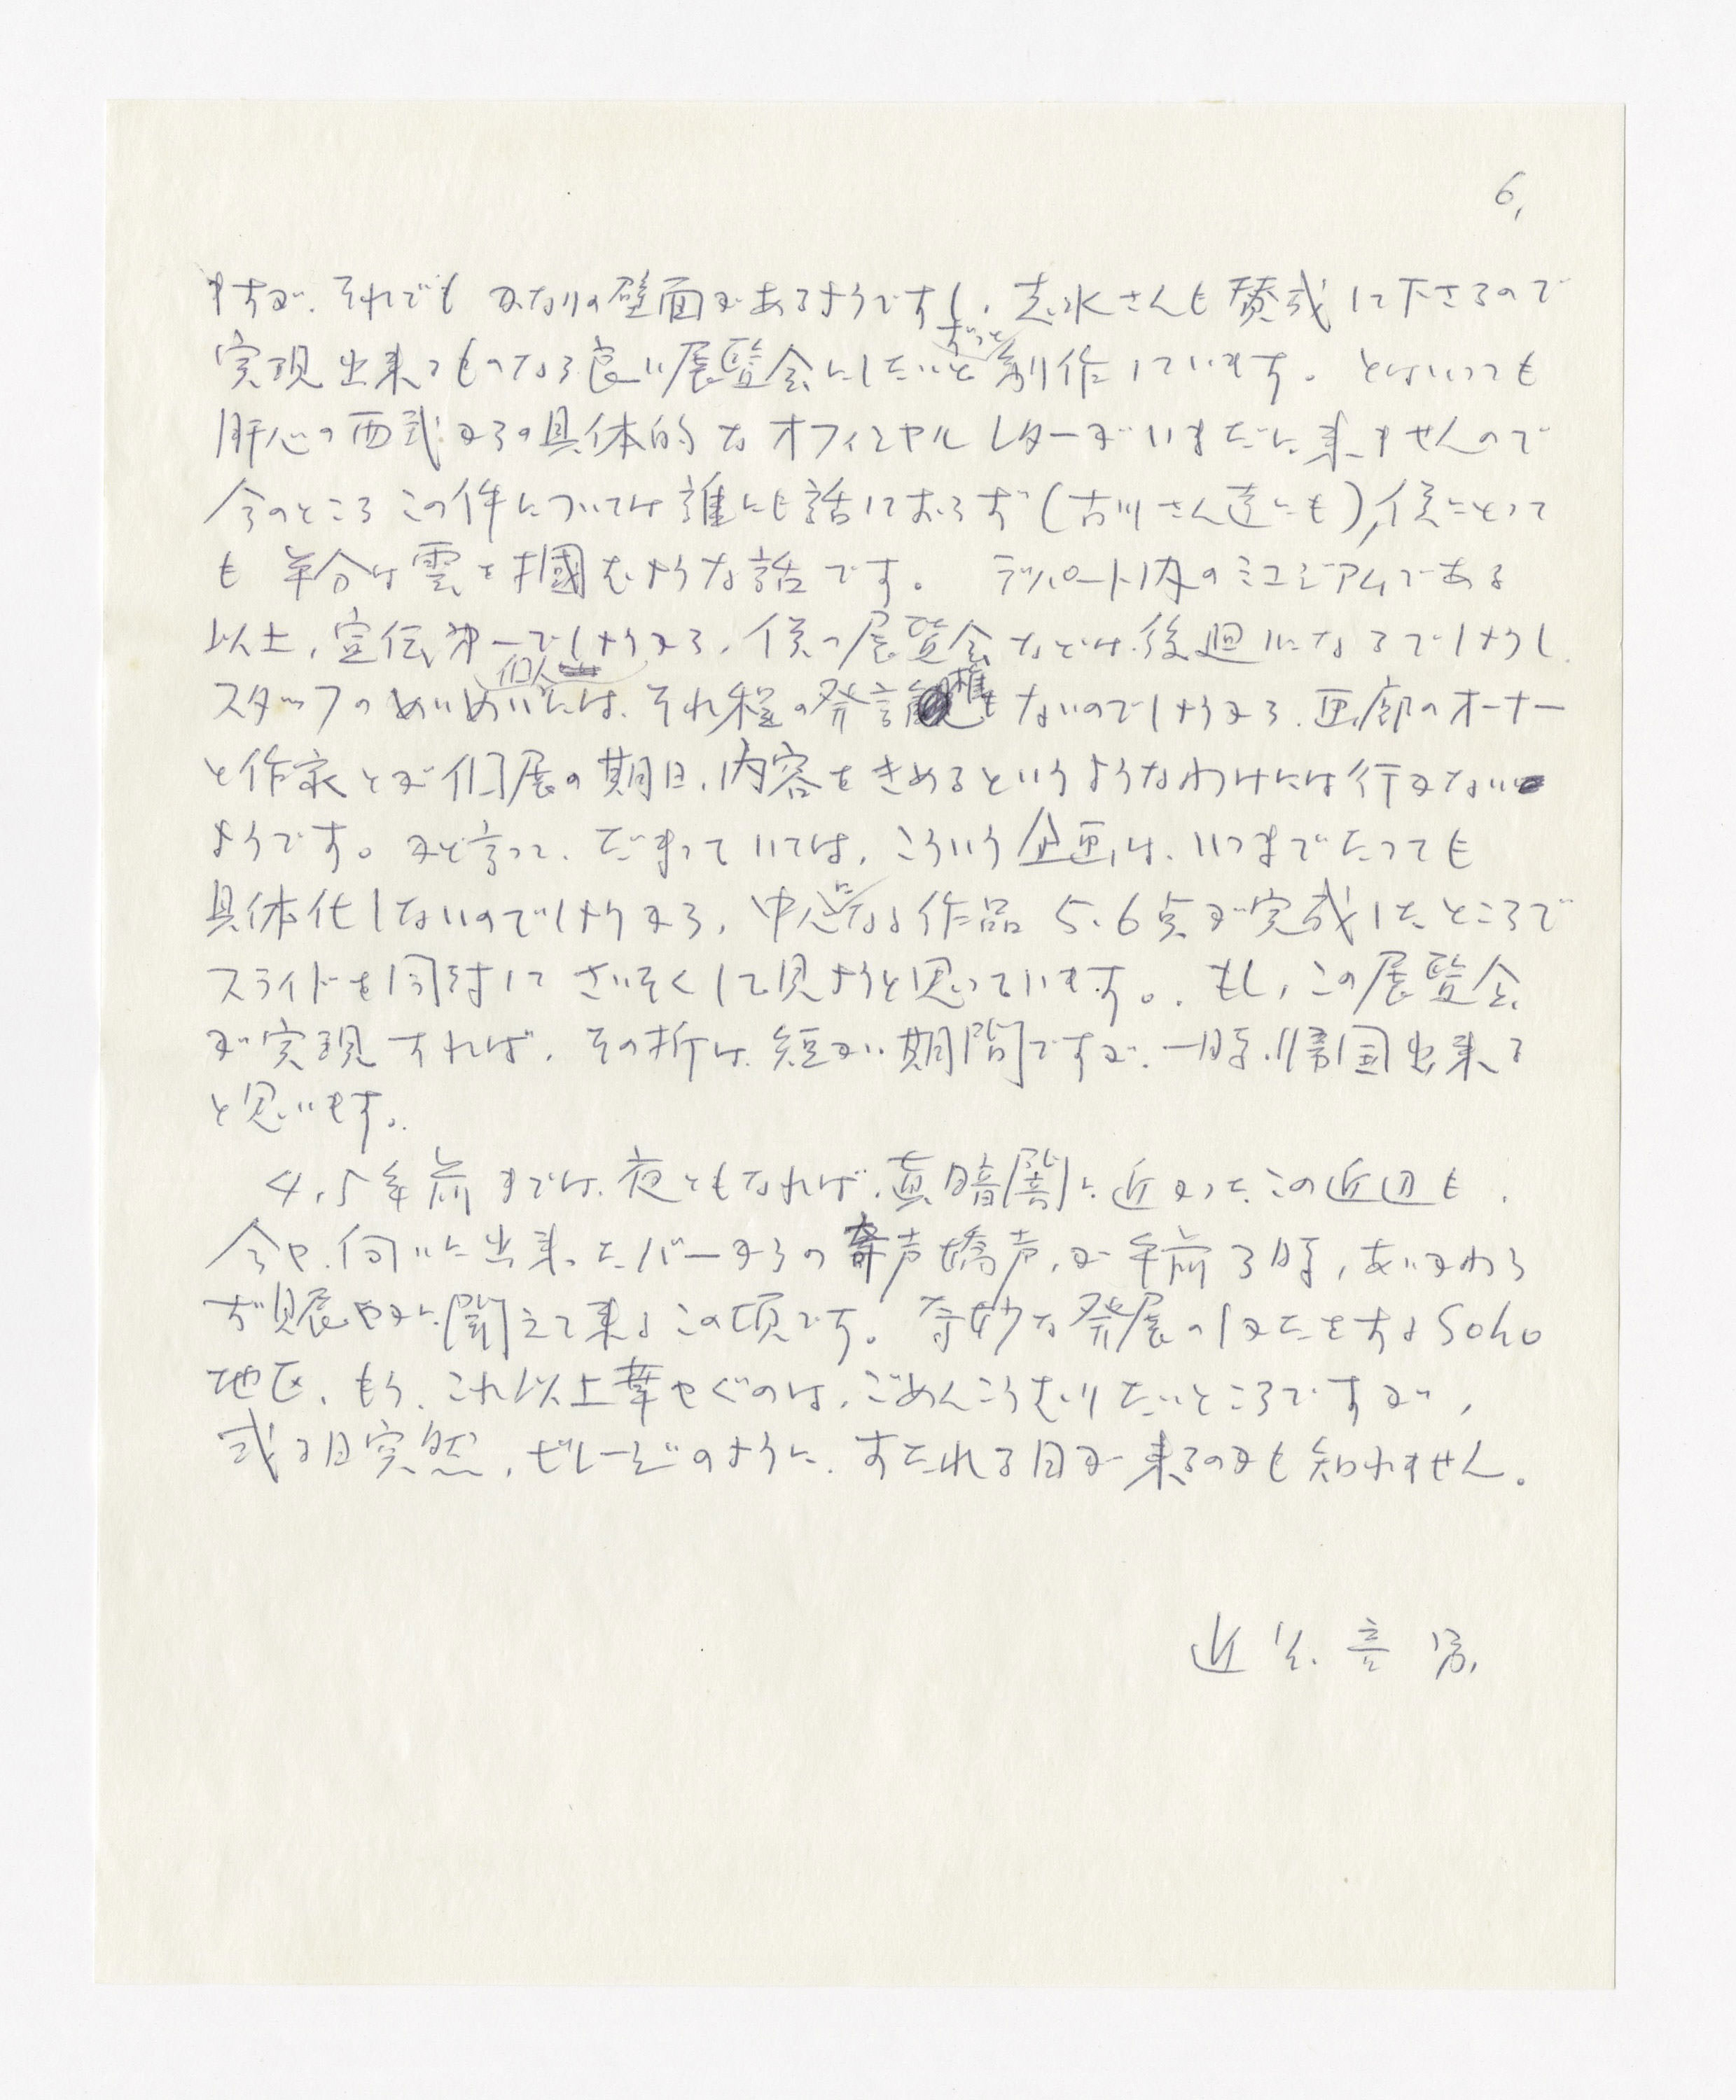 6,
ますが、それでも かなりの壁面があるようですし、志水さんも賛成して下さるので
実現出来るものなら良い展覧会にしたいと ずっと 制作しています。 とはいっても
肝心の西武からの具体的なオフィシャルレターがいまだに来ませんので
今のところこの件については誰にも話しておらず(古川さん達にも)、僕にとって
も 半分は雲を掴むような話です。 デパート内のミュージアムである
以上、宣伝第一でしょうから、僕の展覧会などは後廻しになるでしょうし
スタッフのめいめい個人には、それ程の発言権もないのでしょうから、画廊のオーナー
と作家とが個展の期日、内容をきめるというようなわけには行かない
ようです。かと言って、だまっていては、こういう企画は、いつまでたっても
具体化しないのでしょうから、中心になる作品 5、6点が完成したところで
スライドを同封して さいそくして見ようと思っています。 もし、この展覧会
が実現すれば、その折は、短かい期間ですが、一時帰国出来る
と思います。
4、5年前までは、夜ともなれば、真暗闇に近かったこの近辺も、
今や、向いに出来たバーからの奇声嬌声が午前3時、あいかわら
ず賑やかに聞えて来るこの頃です。奇妙な発展のしかたをするSoho
地区、もう、これ以上華やぐのは、ごめんこうむりたいところですが、
或る日突然、ビレージのように、すたれる日が来るのかも知れません。
近